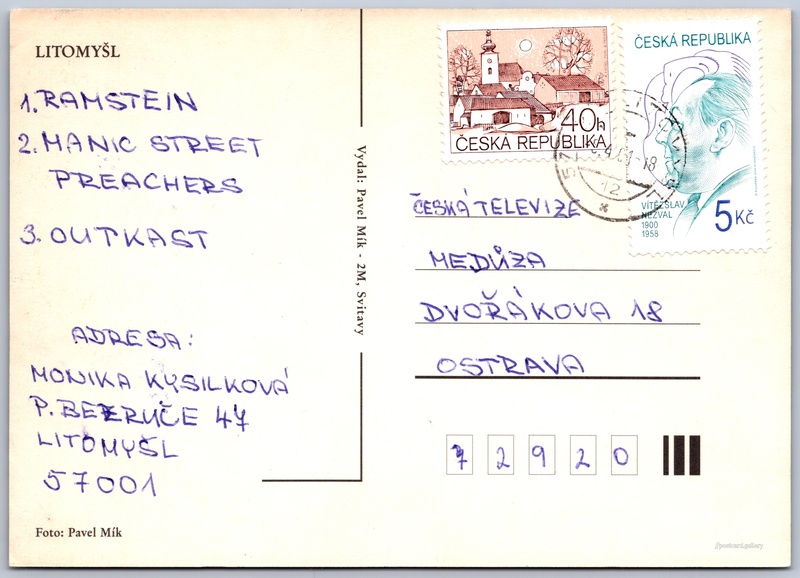 LITOMYŠL
1. RAMSTEIN
2. MANIC STREET
PREACHERS
3. OUTKAST
ADRESA:
MONIKA KYSILKOVÁ
P. BEZRUČE 47
LITOMYŠL
57001
Foto: Pavel Mík
Vydal: Pavel Mík - 2M, Svitavy
40h
ČESKÁ REPUBLIKA
ČESKÁ REPUBLIKA
VÍTĚZSLAV
NEZVAL
1900
1958
5Kč
12
ČESKÁ TELEVIZE
MEDŮZA
DVOŘÁKOVA 18
OSTRAVA
7 2 9 2 0
//postcard.gallery